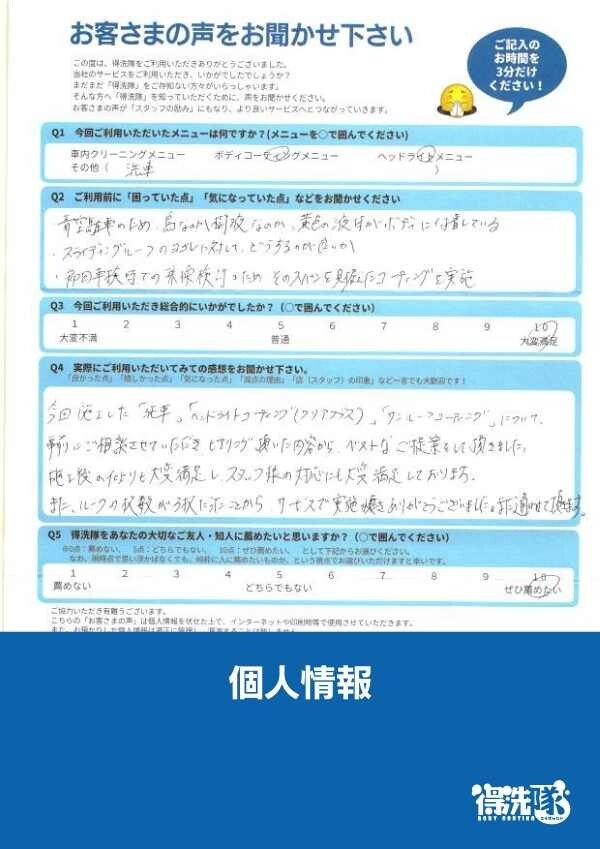 お客さまの声をお聞かせ下さい
この度は、得洗隊をご利用いただきありがとうございました。
当社のサービスをご利用いただき、いかがでしたでしょうか？
まだまだ「得洗隊」をご存知ない方々がいらっしゃいます。
そんな方へ「得洗隊」を知っていただくために、声をお聞かせください。
お客さまの声が「スタッフの励み」にもなり、より良いサービスへとつながっていきます。
ご記入の
お時間を
3分だけ
ください！
Q1 今回ご利用いただいたメニューは何ですか？(メニューを○で囲んでください)
車内クリーニングメニュー ボディコーティングメニュー ヘッドライトメニュー
その他（ 洗車 ）
Q2 ご利用前に「困っていた点」「気になっていた点」などをお聞かせください
青空駐車のため、鳥なのか樹液なのか、黄色の液体がボディに付着している
・スライディングルーフのヨゴレに対して、どうするのが良いか
・次回車検までの乗換検討のため そのスパンを見据えたコーティングを実施
Q3 今回ご利用いただき総合的にいかがでしたか？（○で囲んでください）
1 2 3 4 5 6 7 8 9 10
大変不満 普通 大変満足
Q4 実際にご利用いただいてみての感想をお聞かせ下さい。
「良かった点」「嬉しかった点」「気になった点」「満点の理由」「店（スタッフ）の印象」など一言でも大歓迎です！
今回施工した「洗車」、「ヘッドライトコーティング(クリアプラス)」、「サンルーフコーティング」について、
事前にご相談させていただき ヒアリング頂いた内容から、ベストなご提案をして頂きました。
施工後の 大変満足し、スタッフ様の対応にも大変満足しております。
また、ルーフの枚数が3枚 ことから、サービスで実施頂きありがとうございました。
Q5 得洗隊をあなたの大切なご友人・知人に薦めたいと思いますか？（○で囲んでください）
※0点：薦めない、 5点：どちらでもない、 10点：ぜひ薦めたい、 として下記からお選びください。
1 2 3 4 5 6 7 8 9 10
薦めない どちらでもない ぜひ薦めたい
ご協力いただき有難うございます。
こちらの「お客さまの声」は個人情報を伏せた上で、インターネットや印刷物等で使用させていただきます。
個人情報
得洗隊
BODY COATING